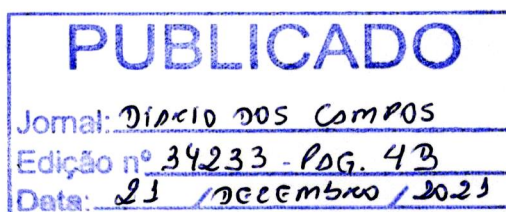 PUBLICADO
Jornal: DIÁRIO DOS CAMPOS
Edição nº 34233 - PAG. 4B
Data: 21 / DEZEMBRO / 2021